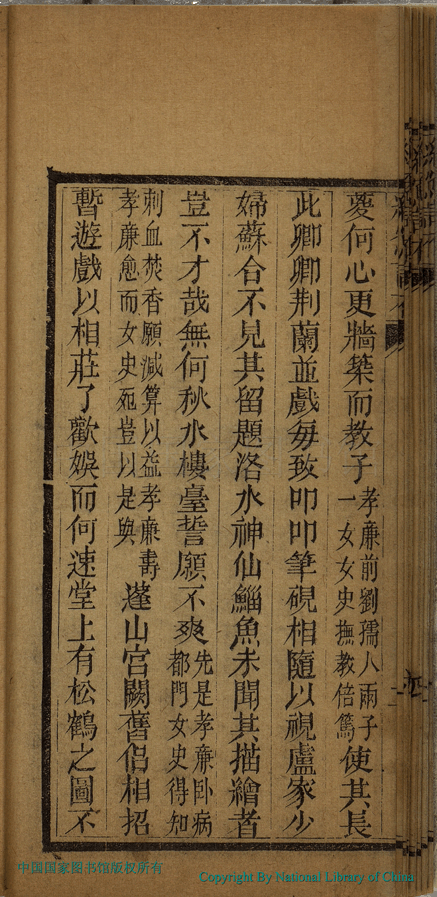 憂何心更牆築而教子孝廉前劉孺人兩子一女女史撫教倍篤使其長
此卿卿荆蘭並戲毎致叩叩筆硯相隨以視盧家少
婦蘇合不見其留題洛水神仙鯔魚未聞其描繪者
豈不才哉無何秋水樓臺誓願不爽先是孝廉卧病都門女史得知
刺血焚香願減算以益孝廉壽孝廉愈而女史死豈以是與蓬山宮闕舊侶相招
暫遊戲以相莊了歡娛而何速堂上有松鶴之圖不
中国国家图书馆版权所有
Copyright By National Library of China